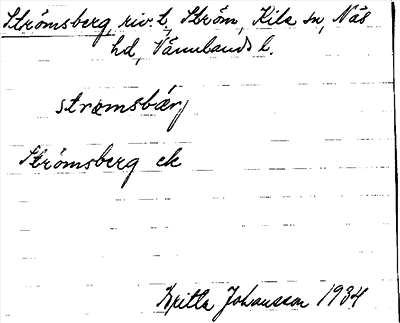 Strömsberg, riv. t. Ström, Kila sn, Näs
hd, Värmlands l.
strømsbærj
Strömsberg ek
Britta Johansson 1934